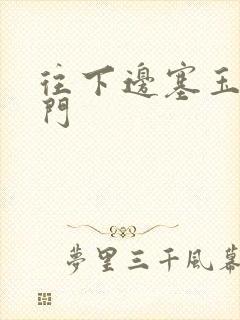 往下邊塞玉
門
夢里三千風幕